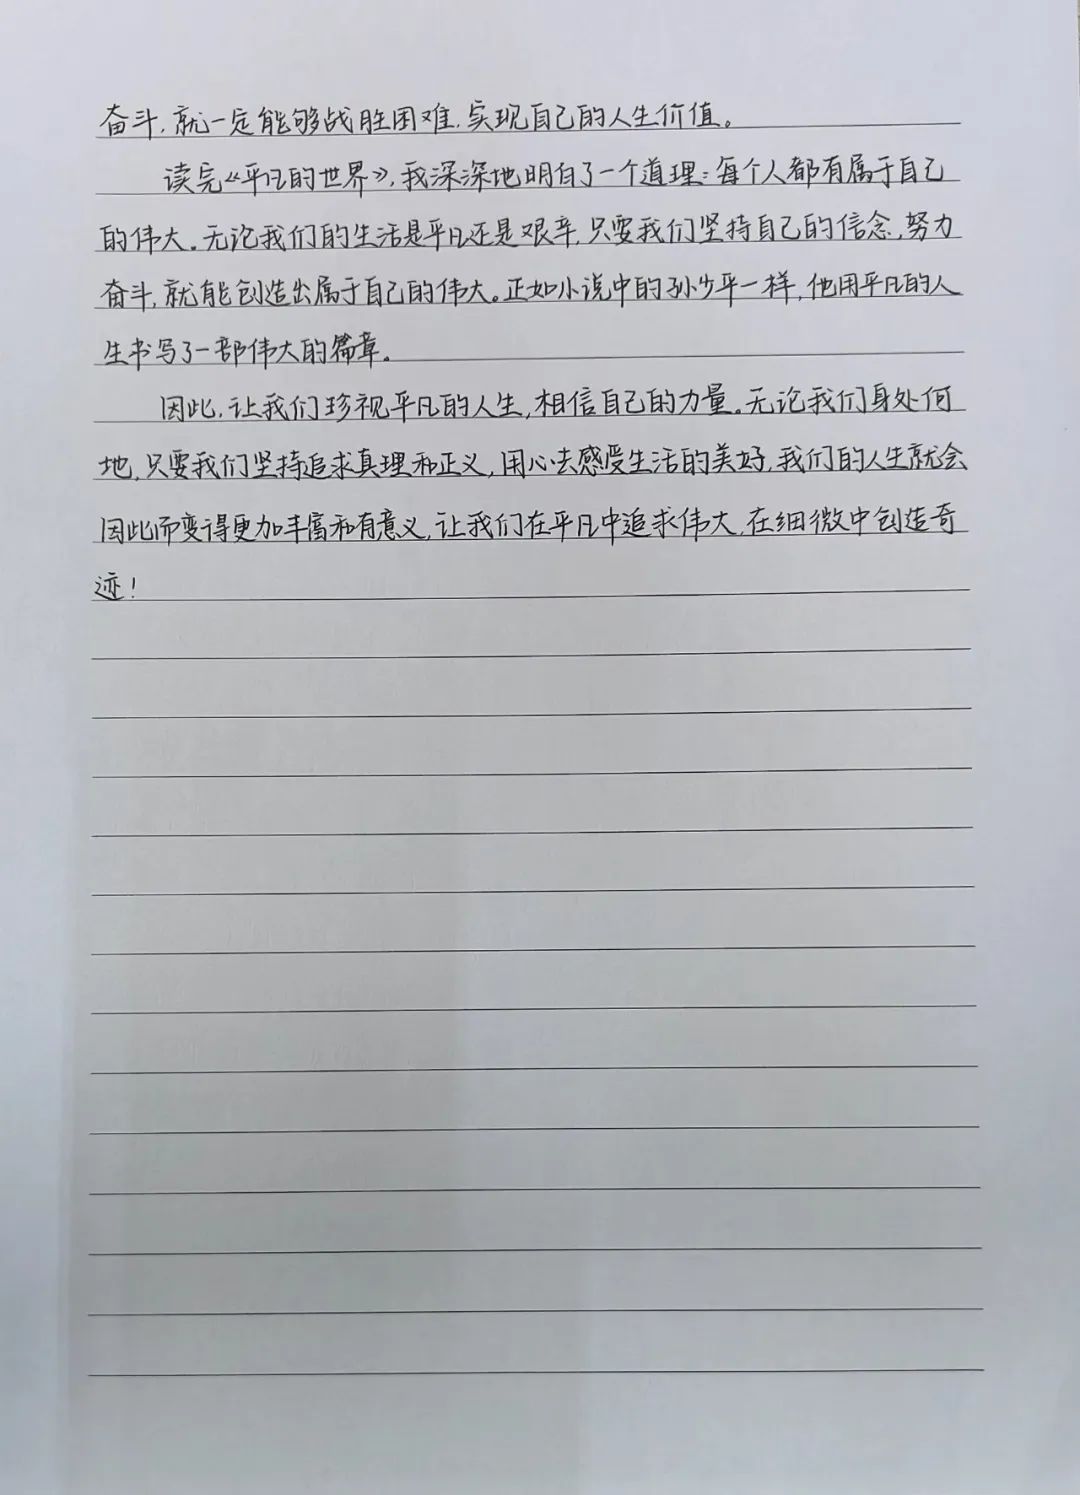 奋斗,就一定能够战胜困难,实现自己的人生价值。
读完《平凡的世界》,我深深地明白了一个道理:每个人都有属于自己
的伟大。无论我们的生活是平凡还是艰辛,只要我们坚持自己的信念,努力
奋斗,就能创造出属于自己的伟大。正如小说中的孙少平一样,他用平凡的人
生书写了一部伟大的篇章。
因此,让我们珍视平凡的人生,相信自己的力量。无论我们身处何
地,只要我们坚持追求真理和正义,用心去感受生活的美好,我们的人生就会
因此而变得更加丰富和有意义,让我们在平凡中追求伟大,在细微中创造奇
迹!